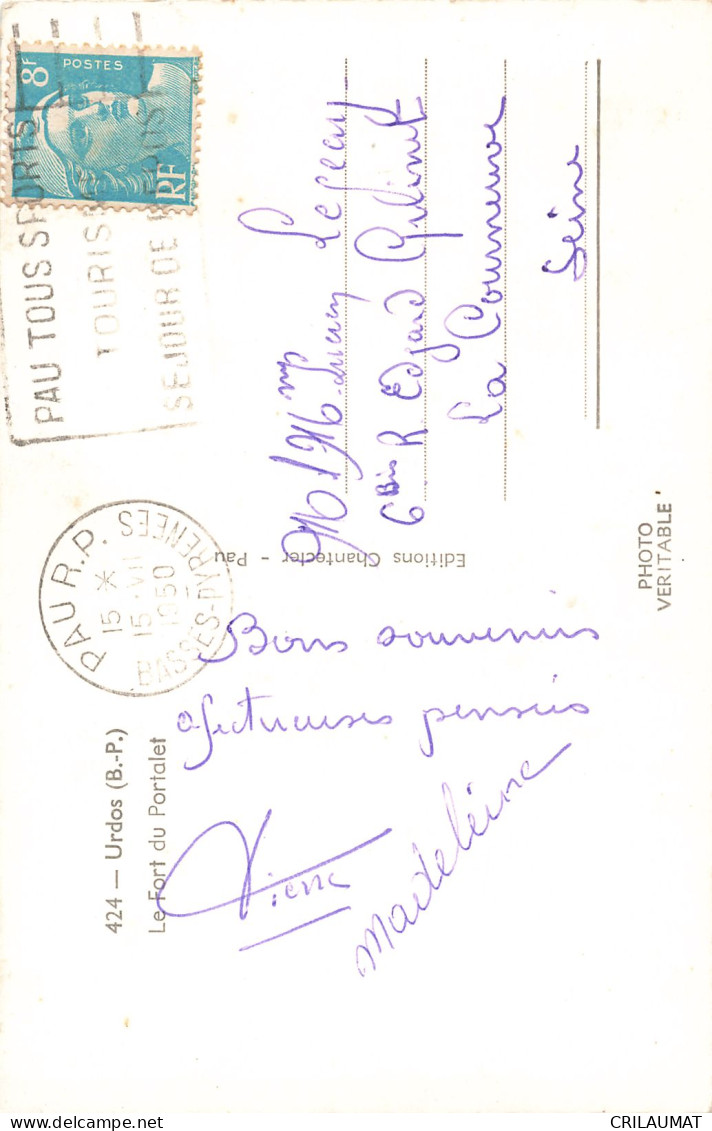 424 — Urdos (B.-P.)
Le Fort du Portalet
Bons souvenirs
afectueuses pensées
Pierre
Madeleine
Editions Chantecler - Pau
PHOTO
VERITABLE
8F
POSTES
RF
PAU TOUS SPORTS
TOURIS
SEJOUR DE
PAU R.P.
15 *
15 - VII
1950
BASSES-PYRENEES
M/Mme Lucien
6 Bis R Edgard Quinet
La Courneuve
Seine
CRILAUMAT